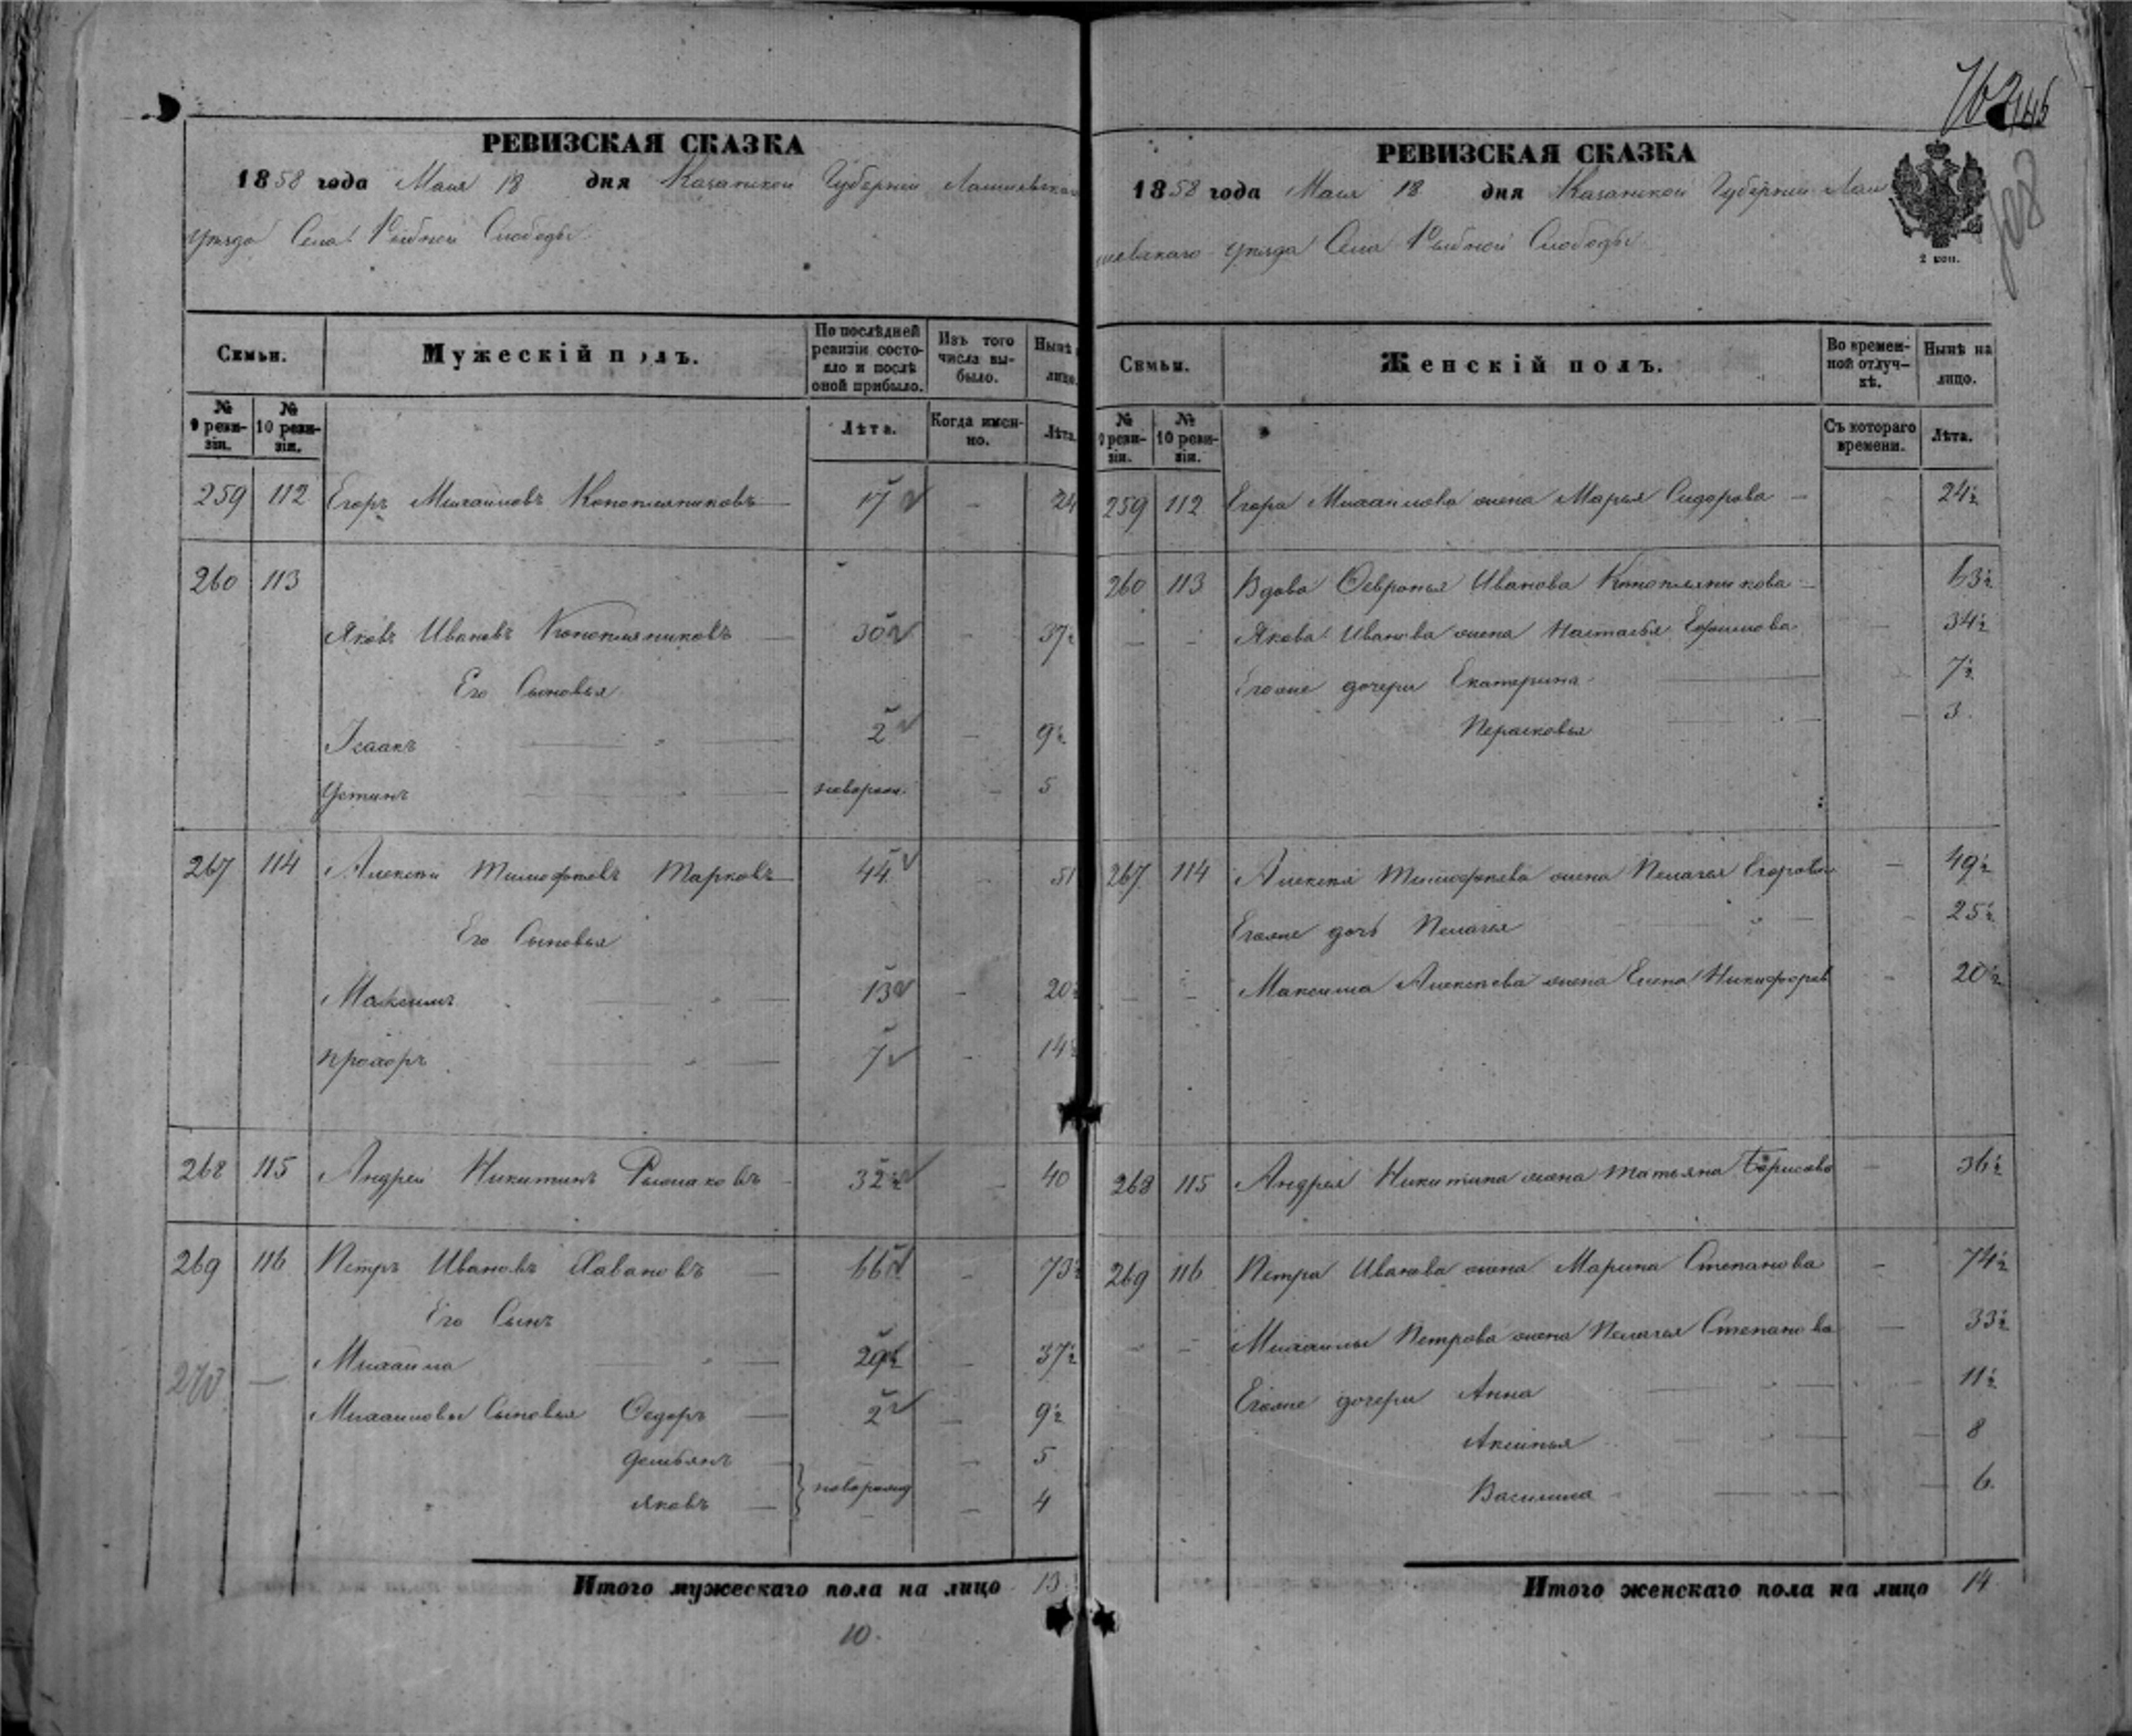 162 445
РЕВИЗСКАЯ СКАЗКА
1858 года Мая 18 дня Казанской Губернии Лаишевскаго
уѣзда Села Рыбной Слободы
Семьи. Мужескій полъ. По послѣдней ревизіи состояло и послѣ оной прибыло. Изъ того числа выбыло. Нынѣ лицо.
№ 9 ревизіи. № 10 ревизіи. Лѣта. Когда именно. Лѣта.
259 112 Егоръ Михайловъ Коноплянниковъ 17 - 24
260 113
Яковъ Ивановъ Конопляниковъ 30 - 37½
Его Сыновья
Исаакъ 2 - 9½
Устинъ новорож. - 5
267 114 Алексѣй Тимофѣевъ Марковъ 44 - 51
Его Сыновья
Максимъ 13 - 20½
Прохоръ 7 - 14½
268 115 Андрей Никитинъ 32½ - 40
269 116 Петръ Ивановъ Хавановъ 66 - 73½
Его Сынъ
270 - Михайла 29½ - 37½
Михайловы Сыновья Ѳедоръ 2 - 9½
Демьянъ - 5
новорожд
Яковъ - 4
Итого мужескаго пола на лицо 13.
10.
РЕВИЗСКАЯ СКАЗКА
1858 года Мая 18 дня Казанской Губерніи Лаи
шевскаго уѣзда Села Рыбной Слободы
2 коп.
Семьи. Женскій полъ. Во временной отлучкѣ. Нынѣ на лицо.
№ 9 ревизіи. № 10 ревизіи. Съ котораго времени. Лѣта.
259 112 Егора Михайлова жена Марья Сидорова - 24½
260 113 Вдова Ѳевронья Иванова Конопляникова - 63½
- - Якова Иванова жена Настасья Ефимова - 34½
Егоже дочери Екатерина - 7½
Перасковья - 3.
267 114 Алексѣя Тимофѣева жена Пелагея Егорова - 49½
Егоже дочь Пелагея - 25½
- - Максима Алексѣева жена Елена Никифоров - 20½
268 115 Андрея Никитина жена Татьяна Борисова - 36½
269 116 Петра Иванова жена Марина Степанова - 74½
- - Михайлы Петрова жена Пелагея Степанова - 33½
Егоже дочери Анна - 11½
Аксинья - 8
Василиса - 6.
Итого женскаго пола на лицо 14